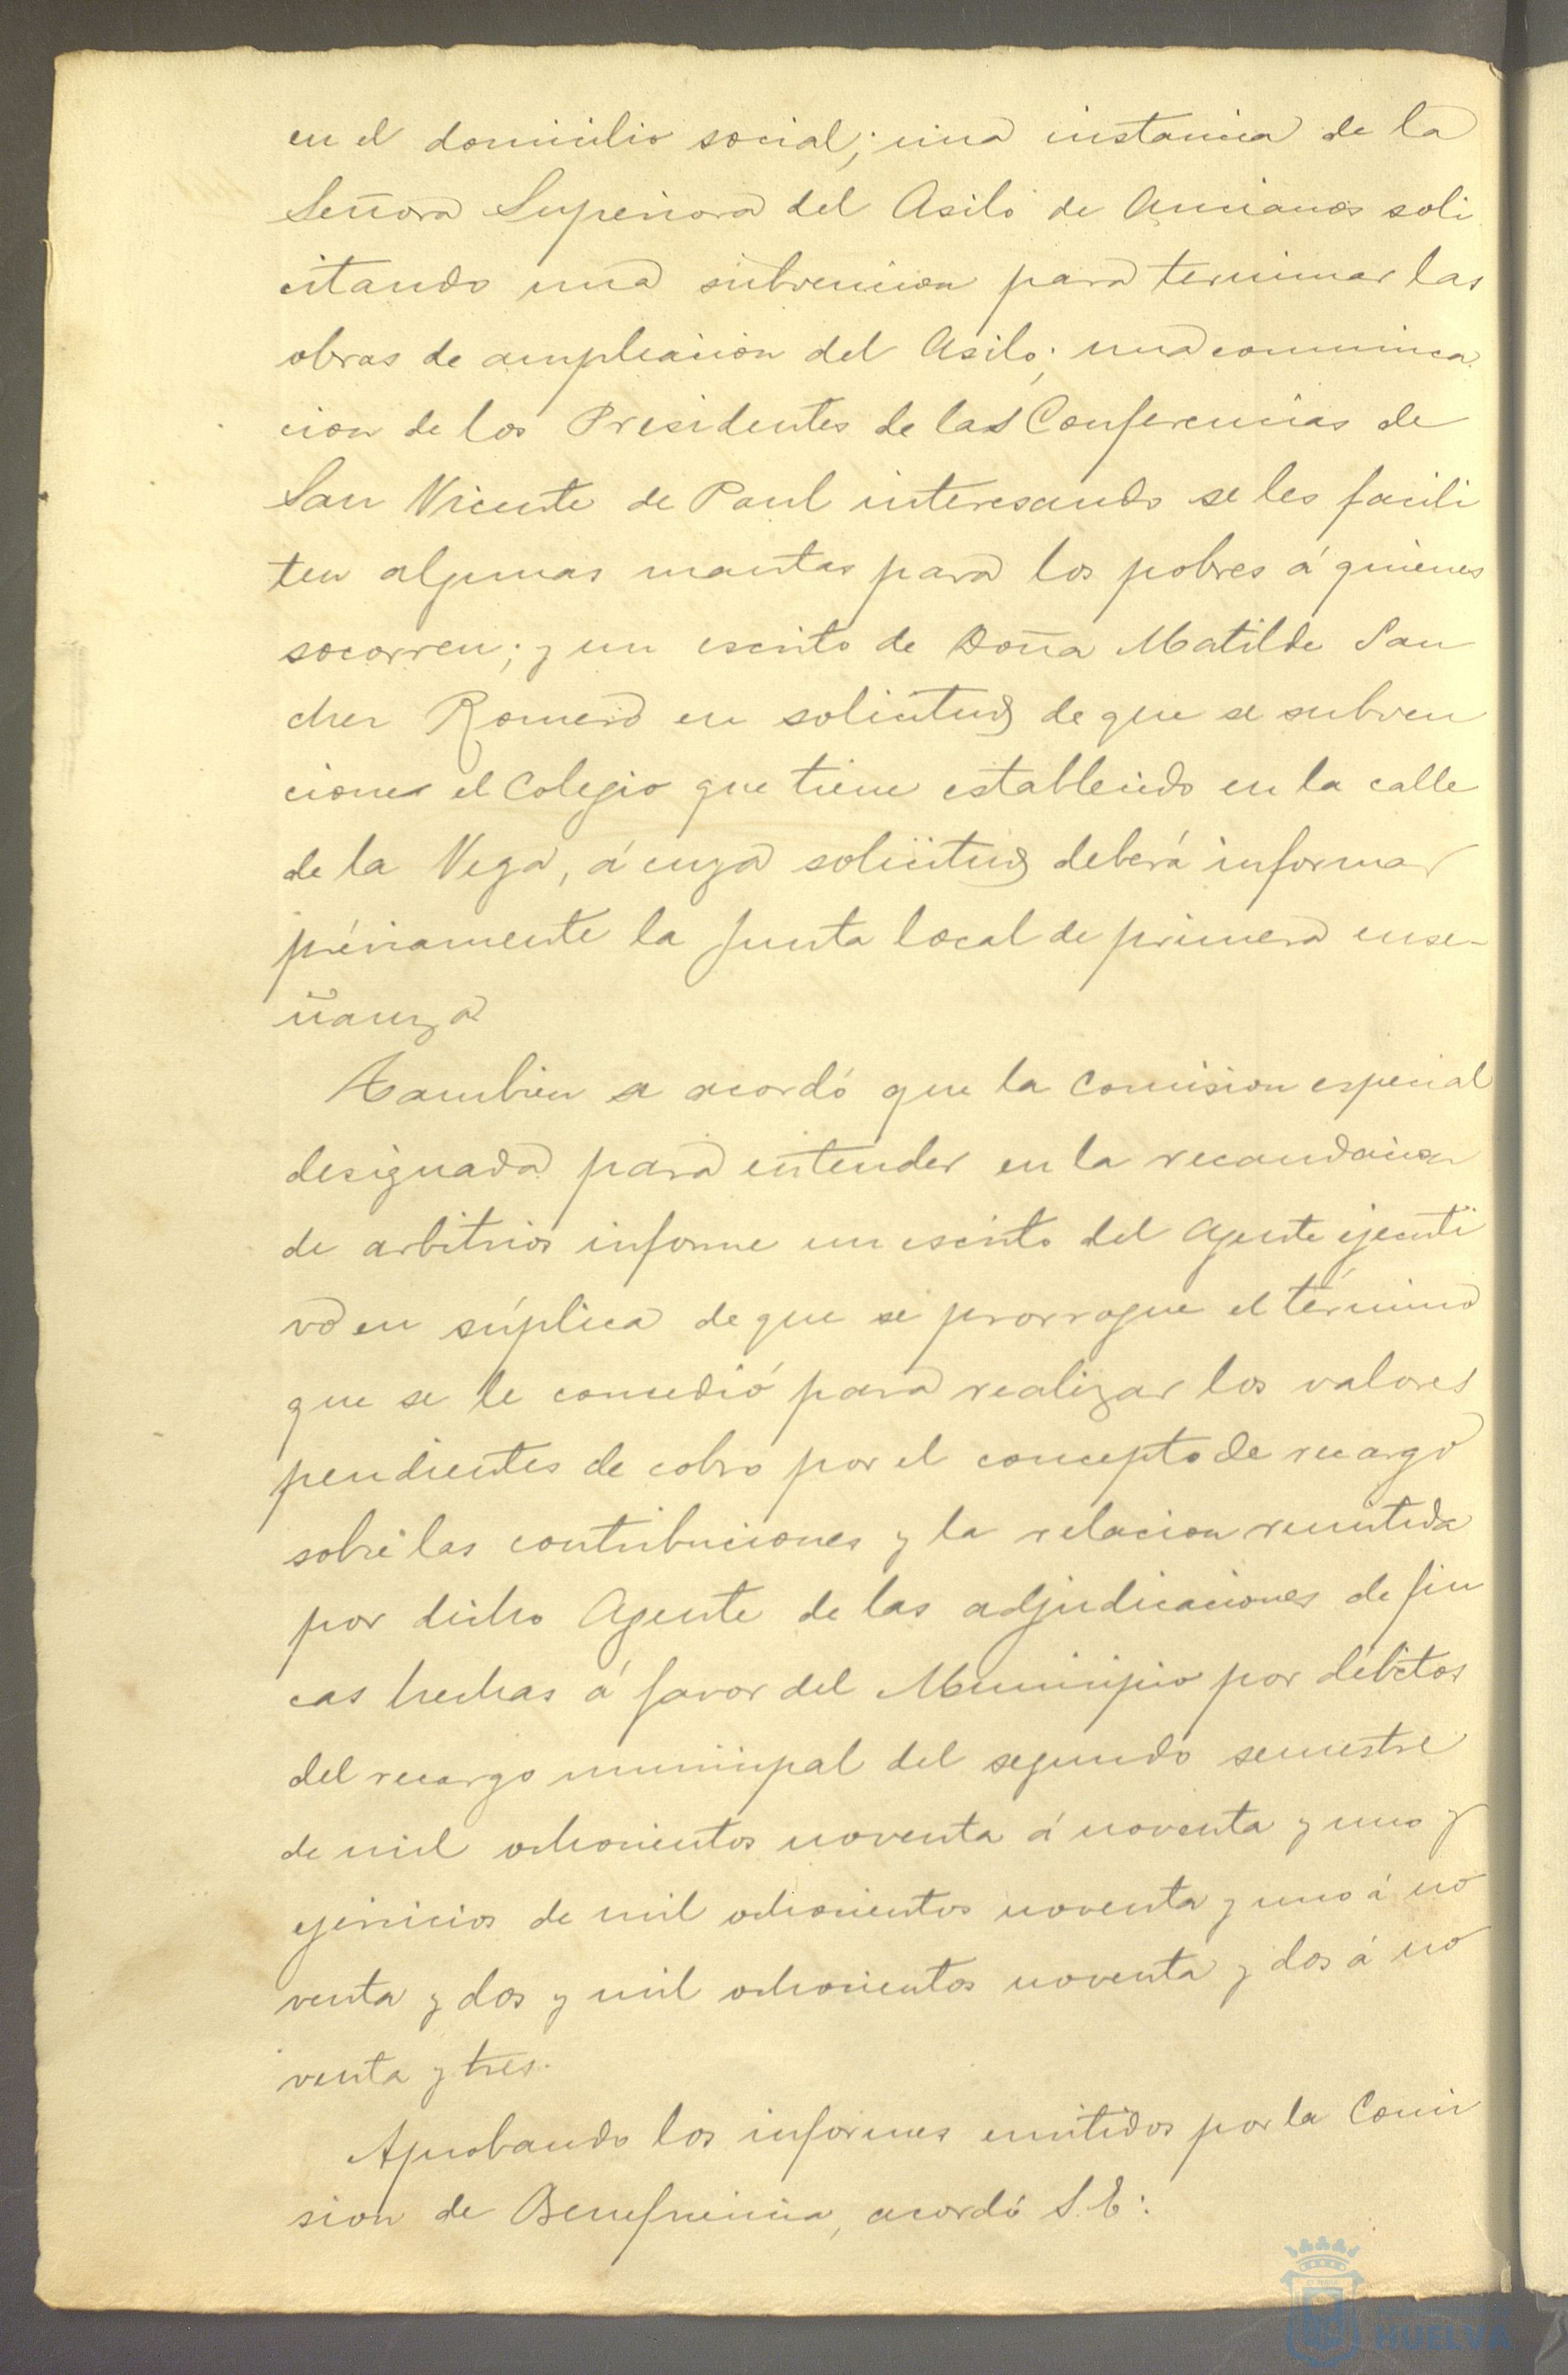 en el domicilio social; una instancia de la
Señora Superiora del Asilo de Ancianos soli
citando una subvencion para terminar las
obras de ampliacion del Asilo; una comunica
cion de los Presidentes de las Conferencias de
San Vicente de Paul interesando se les facili
ten algunas mantas para los pobres á quienes
socorren; y un escrito de Doña Matilde San
chez Romero en solicitud de que se subven
cione el Colegio que tiene establecido en la calle
de la Vega, á cuya solicitud deberá informar
préviamente la Junta local de primera ense-
ñanza
Tambien se acordó que la Comision especial
designada para entender en la recaudacion
de arbitrios informe un escrito del Agente ejecuti
vo en súplica de que se prorrogue el término
que se le concedió para realizar los valores
pendientes de cobro por el concepto de recargo
sobre las contribuciones y la relacion remitida
por dicho Agente de las adjudicaciones de fin
cas hechas á favor del Municipio por débitos
del recargo municipal del segundo semestre
de mil ochocientos noventa á noventa y uno y
ejercicios de mil ochocientos noventa y uno á no
venta y dos y mil ochocientos noventa y dos á no
venta y tres.
Aprobando los informes emitidos por la Comi
sion de Beneficencia, acordó S.E:
HUELVA